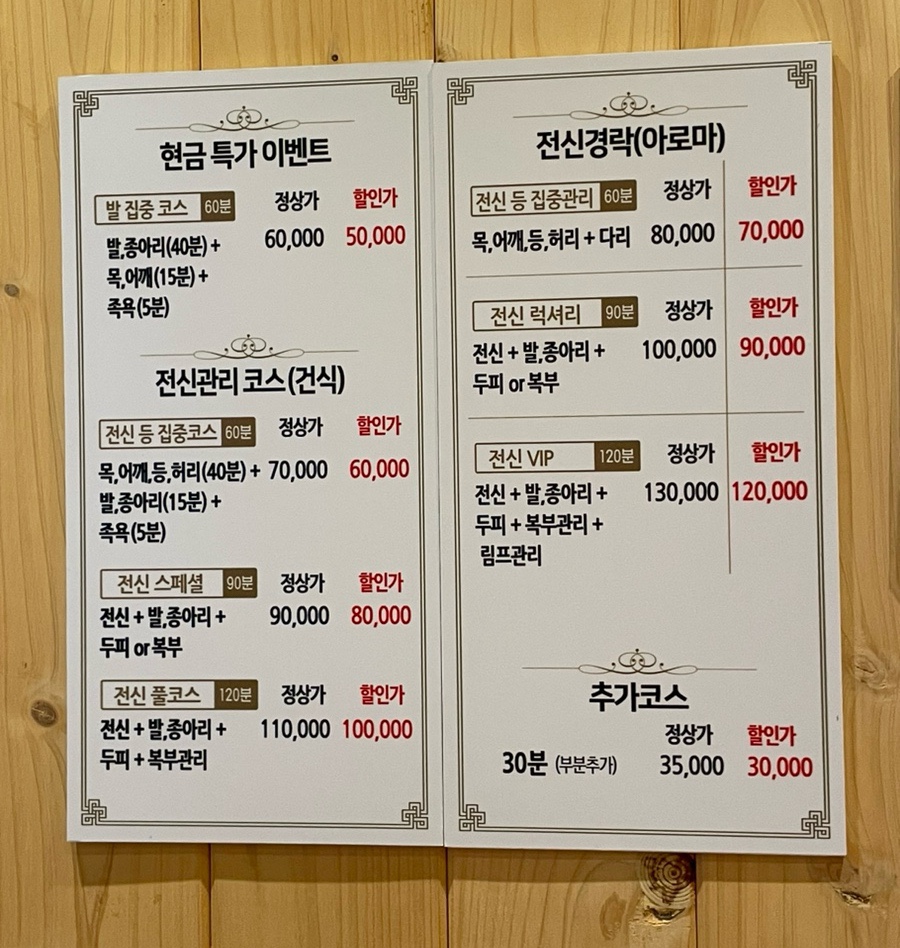 현금 특가 이벤트
발 집중 코스 60분 정상가 할인가
발,종아리(40분) + 60,000 50,000
목,어깨(15분) +
족욕(5분)
전신관리 코스(건식)
전신 등 집중코스 60분 정상가 할인가
목,어깨,등,허리(40분) + 70,000 60,000
발,종아리(15분) +
족욕(5분)
전신 스페셜 90분 정상가 할인가
전신 + 발,종아리 + 90,000 80,000
두피 or 복부
전신 풀코스 120분 정상가 할인가
전신 + 발,종아리 + 110,000 100,000
두피 + 복부관리
전신경락(아로마)
전신 등 집중관리 60분 정상가 할인가
목,어깨,등,허리 + 다리 80,000 70,000
전신 럭셔리 90분 정상가 할인가
전신 + 발,종아리 + 100,000 90,000
두피 or 복부
전신 VIP 120분 정상가 할인가
전신 + 발,종아리 + 130,000 120,000
두피 + 복부관리 +
림프관리
추가코스
정상가 할인가
30분 (부분추가) 35,000 30,000